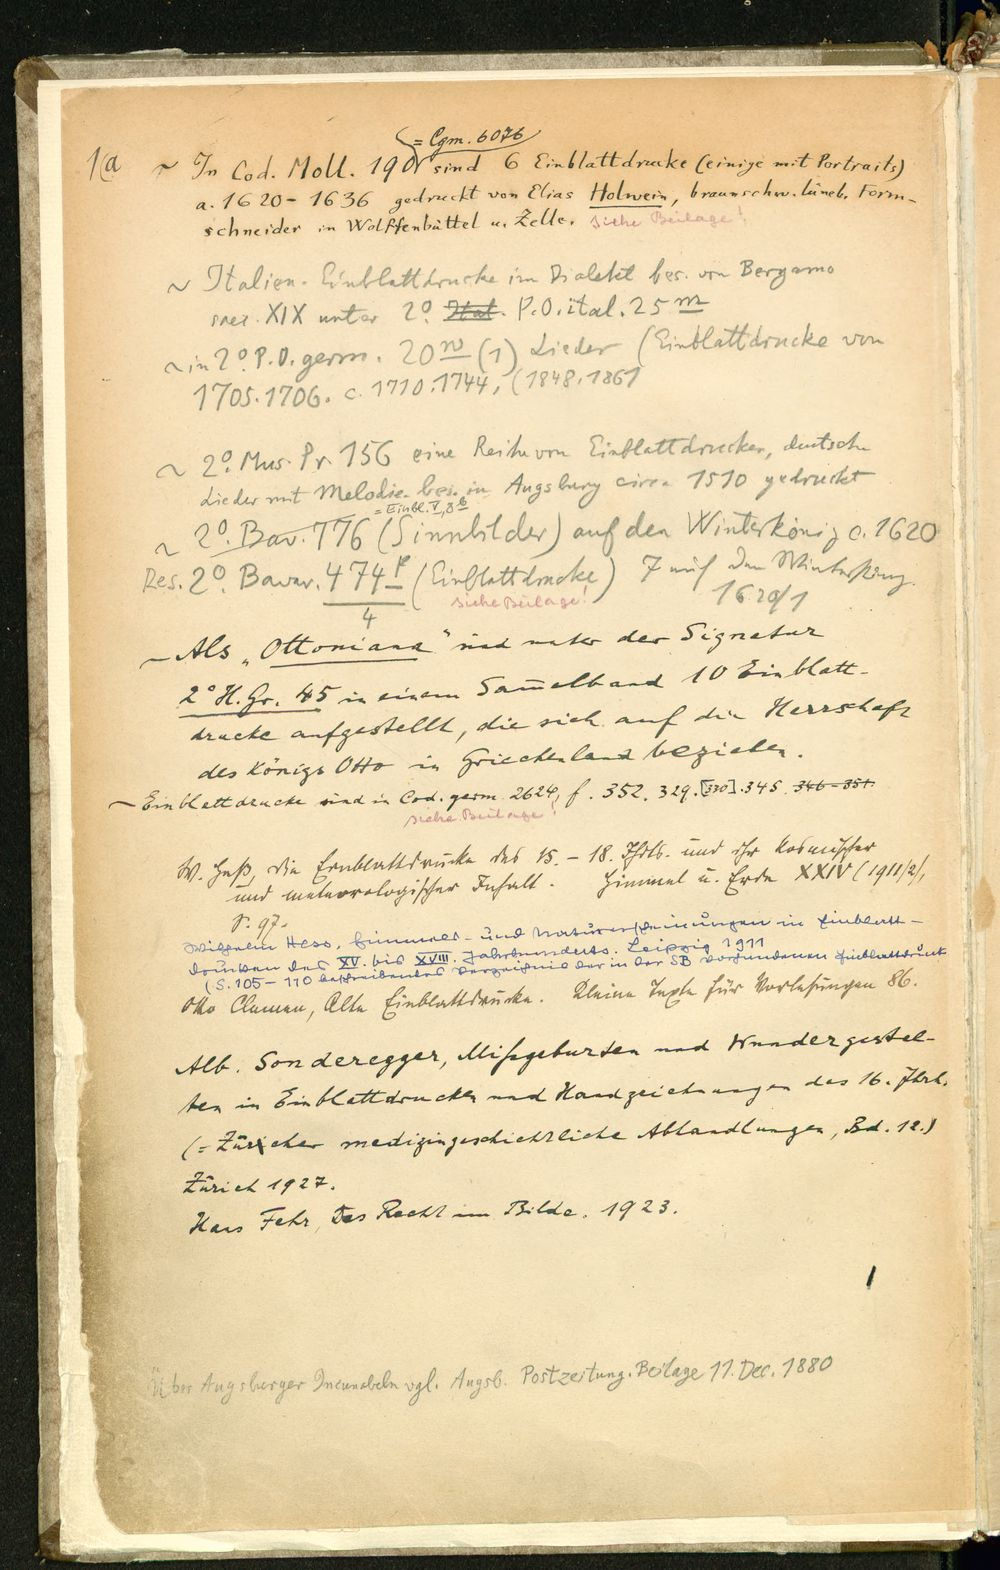 = Cgm. 6076
1(a ~ In Cod. Moll. 190 sind 6 Einblattdrucke (einige mit Portraits)
a. 1620-1636 gedruckt von Elias Holwein, braunschw. lüneb. Form-
schneider in Wolffenbüttel u. Zelle. siehe Beilage!
~ Italien. Einblattdrucke im Dialekt bes. von Bergamo
saec. XIX unter 2°. Ital. P.O. ital. 25 m
~ in 2° P.O. germ. 20 w (1) Lieder (Einblattdrucke von
1705. 1706. c. 1710. 1744, (1848. 1861
~ 2°. Mus. Pr. 156 eine Reihe von Einblattdrucken, deutsche
Lieder mit Melodie. bes. in Augsburg circa 1510 gedruckt
= Einbl. V, 8 b
~ 2°. Bav. 776 (Sinnbilder) auf den Winterkönig c. 1620
Res. 2° Bavar. 474 p/4 (Einblattdrucke) 7 auf den Winterkönig.
siehe Beilage! 1620/1
~ Als „Ottoniana" sind unter der Signatur
2° H. Gr. 45 in einem Sam̅elband 10 Einblatt-
drucke aufgestellt, die sich auf die Herrschaft
des Königs Otto in Griechenland beziehen.
~ Einblattdrucke sind in Cod. germ. 2624, f. 352. 329. [330]. 345. 346-351.
siehe Beilage!
W. Heß, Die Einblattdrucke des 15. - 18. Jhdts. und ihr kosmischer
und meteorologischer Inhalt. Himmel u. Erde XXIV (1911/2),
S. 97.
Wilhelm Hess, Himmels- und Naturerscheinungen in Einblatt-
drucken des XV. bis XVIII. Jahrhunderts. Leipzig 1911
(S. 105-110 beschreibendes Verzeichnis der in der SB vorhandenen Einblattdrucke
Otto Clemen, Alte Einblattdrucke. Kleine Texte für Vorlesungen 86.
Alb. Sonderegger, Missgeburten und Wundergestal-
ten in Einblattdrucken und Handzeichnungen des 16. Jhrh.
(= Züricher medizingeschichtliche Abhandlungen, Bd. 12.)
Zürich 1927.
Hans Fehr, Das Recht im Bilde. 1923.
1
Über Augsburger Incunabeln vgl. Augsb. Postzeitung. Beilage 11. Dec. 1880